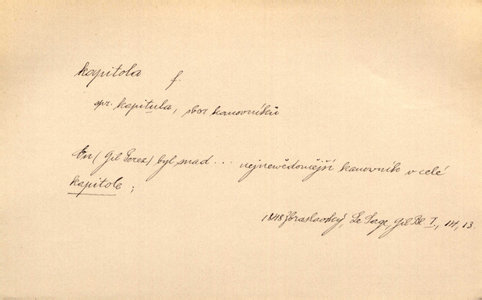 kapitola f.
spr. kapitula, sbor kanovníků
Ten (Gil Perez) byl snad ... nejnevědomější kanovník v celé
kapitole ;
1848 Jbraslavský, Le Sage, Gil Bl. I., 14, 13.